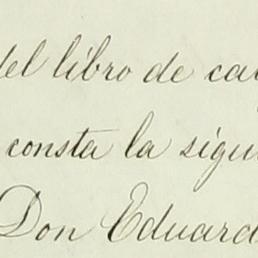 del libro de ca
consta la sigu
Don Eduard